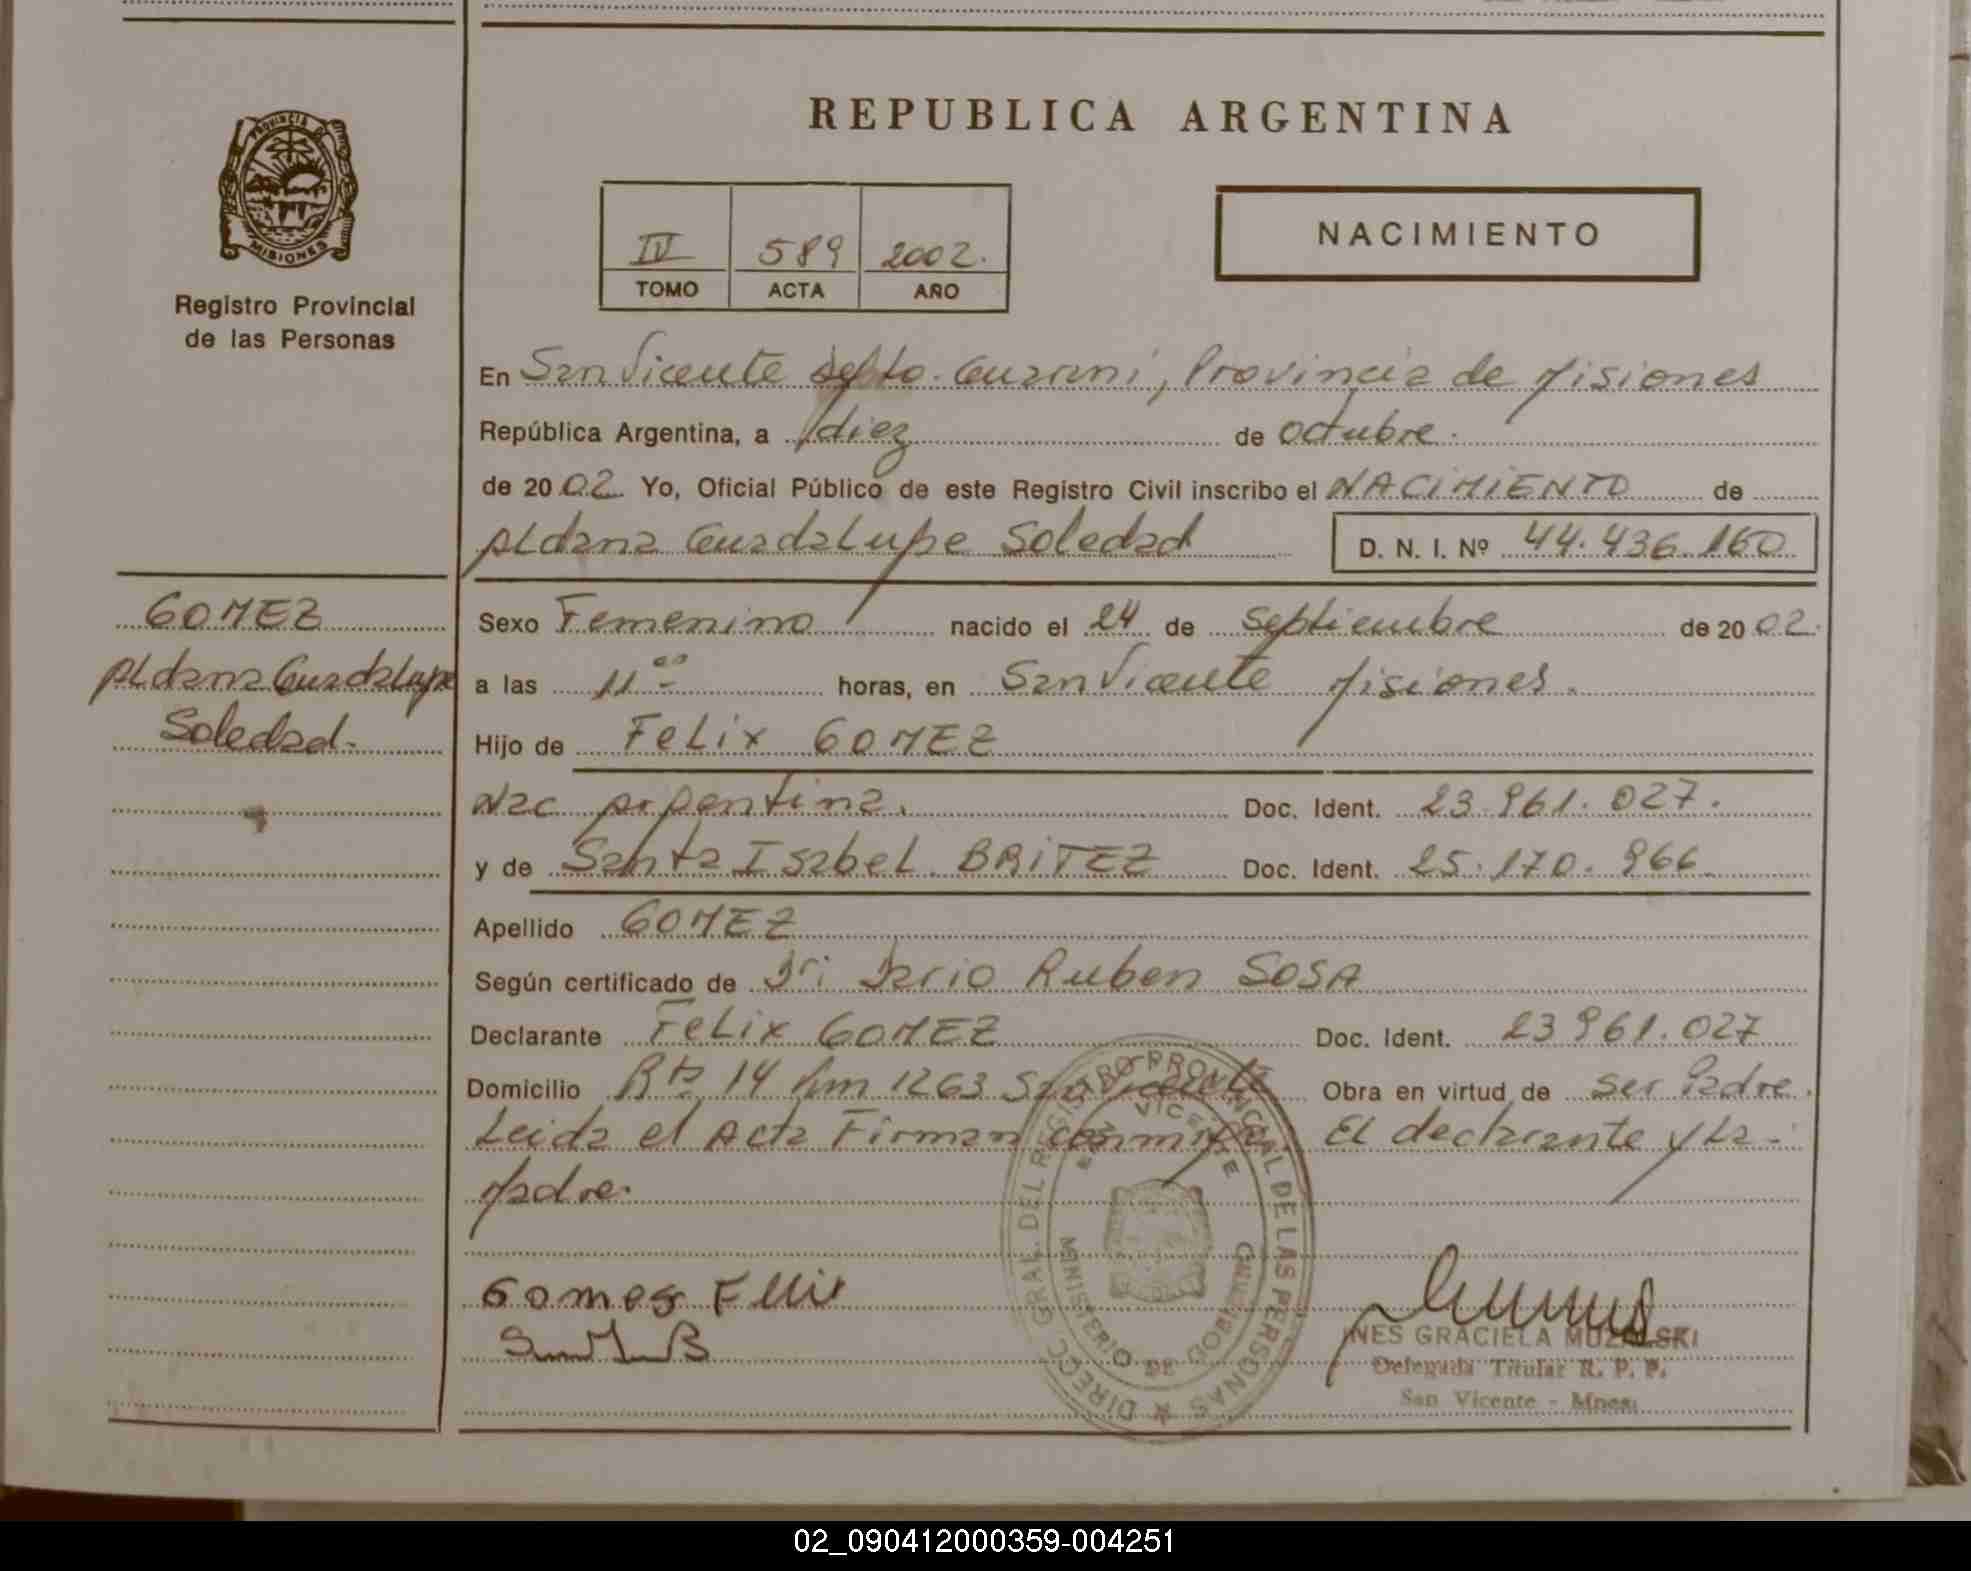 REPUBLICA ARGENTINA
PROVINCIA DE
MISIONES
Registro Provincial
de las Personas
IV 589 2002.
TOMO ACTA AÑO
NACIMIENTO
En San Vicente depto. Guarani, Provincia de Misiones
República Argentina, a diez de octubre.
de 2002. Yo, Oficial Público de este Registro Civil inscribo el NACIMIENTO de
Aldana Guadalupe Soledad D. N. I. Nº 44.436.160
GOMEZ
Aldana Guadalupe
Soledad.
Sexo Femenino nacido el 24 de Septiembre de 2002.
a las 11 00 horas, en San Vicente Misiones.
Hijo de Felix GOMEZ
Nac Argentina. Doc. Ident. 23.961.027.
y de Santa Isabel BRITEZ Doc. Ident. 25.170.966
Apellido GOMEZ
Según certificado de Dario Ruben SOSA
Declarante Felix GOMEZ Doc. Ident. 23 961.027
Domicilio Rta 14 Km 1263 San Vicente Obra en virtud de ser Padre.
Leida el Acta Firman conmigo El declarante y La
Madre.
DIRECC GRAL. DEL REGISTRO PROVINCIAL DE LAS PERSONAS
VICENTE
MINISTERIO DE GOBIERNO
Gomes Felix
INES GRACIELA
Delegada Titular R. P. P.
San Vicente - Mnes.
02_090412000359-004251